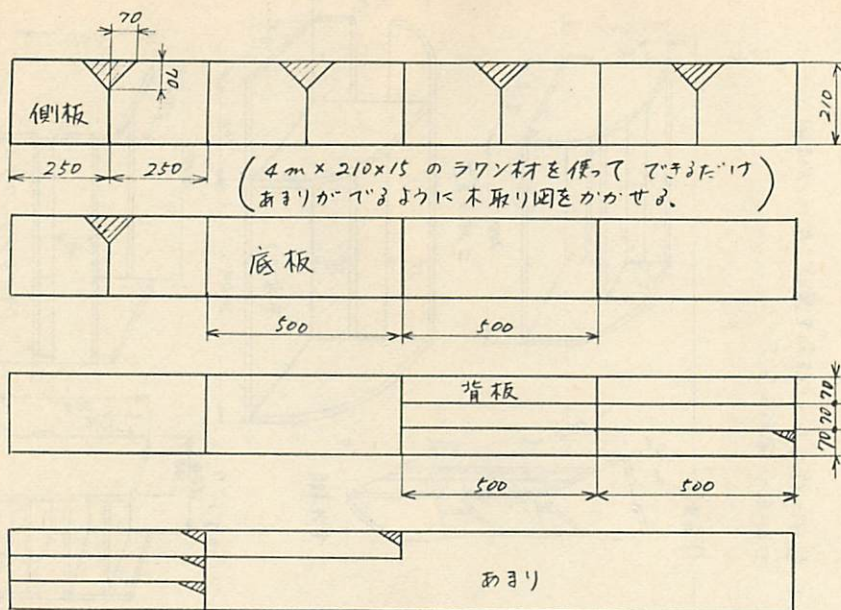 70
70
側板
210
250
250
(4m×210×15 のラワン材を使って できるだけ
あまりがでるように 木取り図をかかせる。)
底板
500
500
背板
70
70
70
500
500
あまり